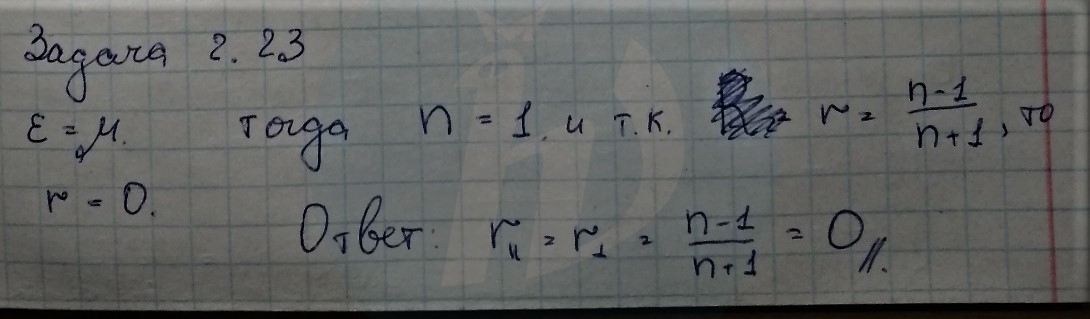 Задача 2.23
ε = μ. тогда n = 1. и т.к. r = \frac{n-1}{n+1}, то
r = 0.
Ответ: r_{∥} = r_⊥ = \frac{n-1}{n+1} = 0 //.